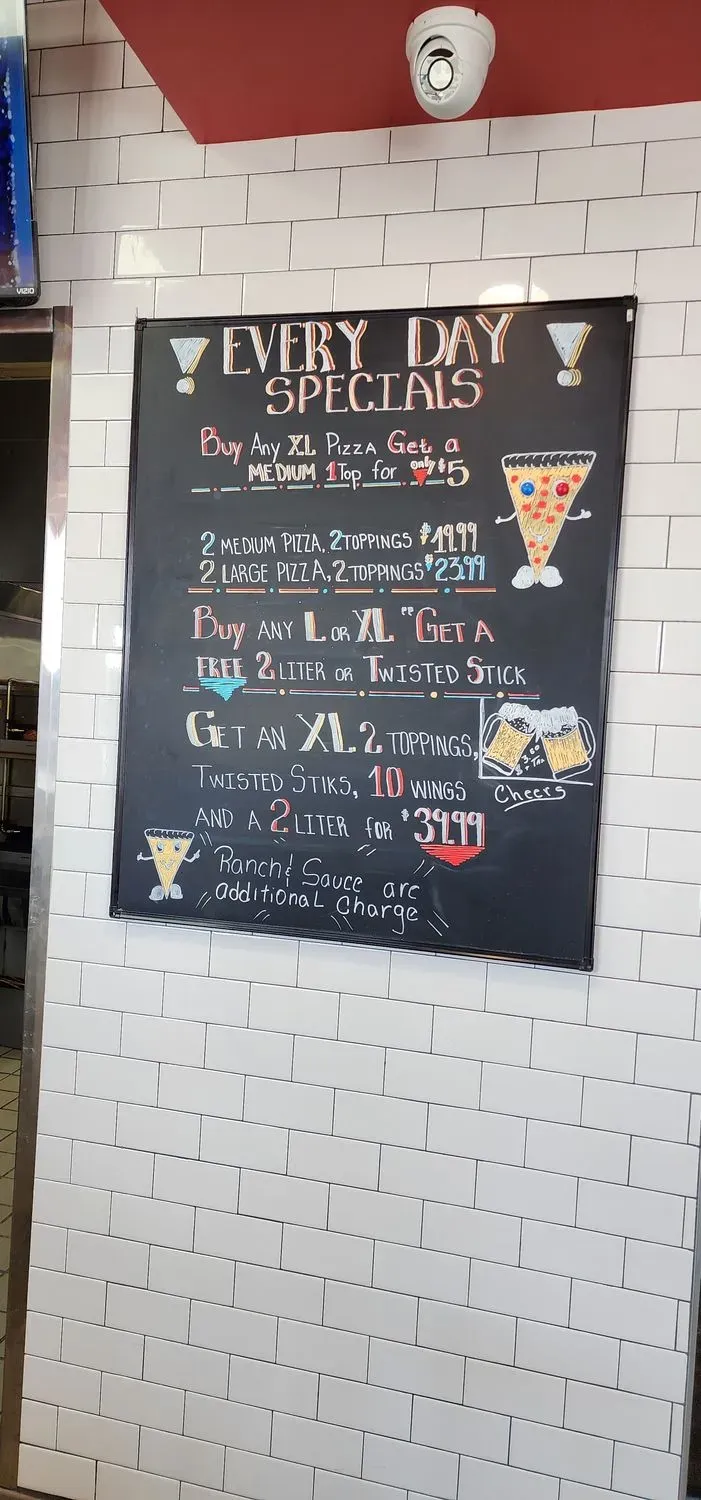 VIZIO
EVERY DAY
SPECIALS
Buy Any XL Pizza Get a
MEDIUM 1 Top for only $5
2 MEDIUM PIZZA, 2 TOPPINGS $19.99
2 LARGE PIZZA, 2 TOPPINGS $23.99
Buy ANY L OR XL "GET A
FREE 2 LITER OR TWISTED STICK
GET AN XL 2 TOPPINGS,
TWISTED STIKS, 10 WINGS
AND A 2 LITER FOR $39.99
$3.00
+ Tax
Cheers
Ranch & Sauce are
additional charge